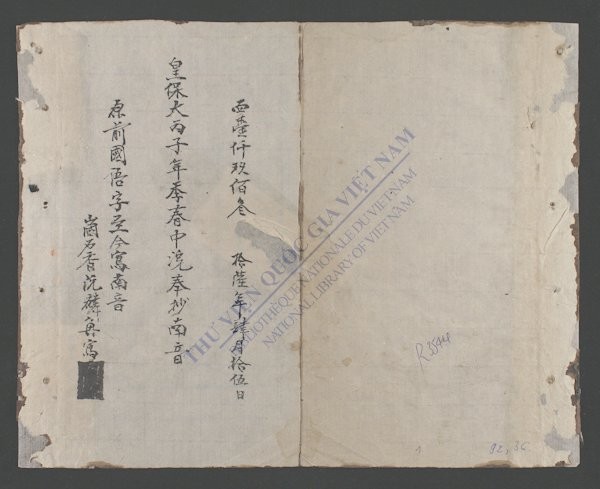 西壹仟玖佰叁拾陸年肆月拾伍日
皇保大丙子年季春中浣奉抄南音
原前國語字至今寫南音
石香阮寫
THƯ VIỆN QUỐC GIA VIỆT NAM
BIBLIOTHÈQUE NATIONALE DU VIETNAM
NATIONAL LIBRARY OF VIETNAM
1